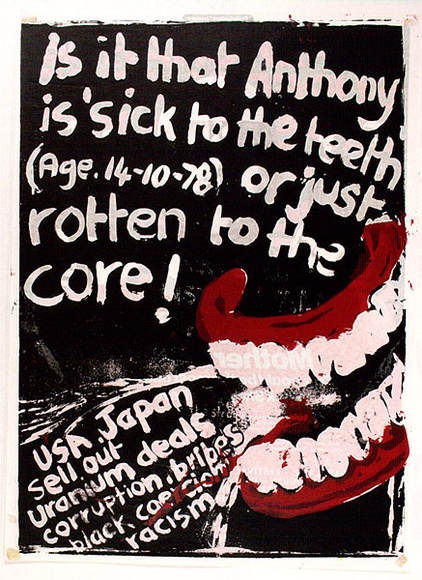 Is it that Anthony
is 'sick to the teeth'
(Age. 14-10-78) or just
rotten to the
core!
Mother
USA, Japan
sell out
uranium deals
corruption, bribes
black
racism